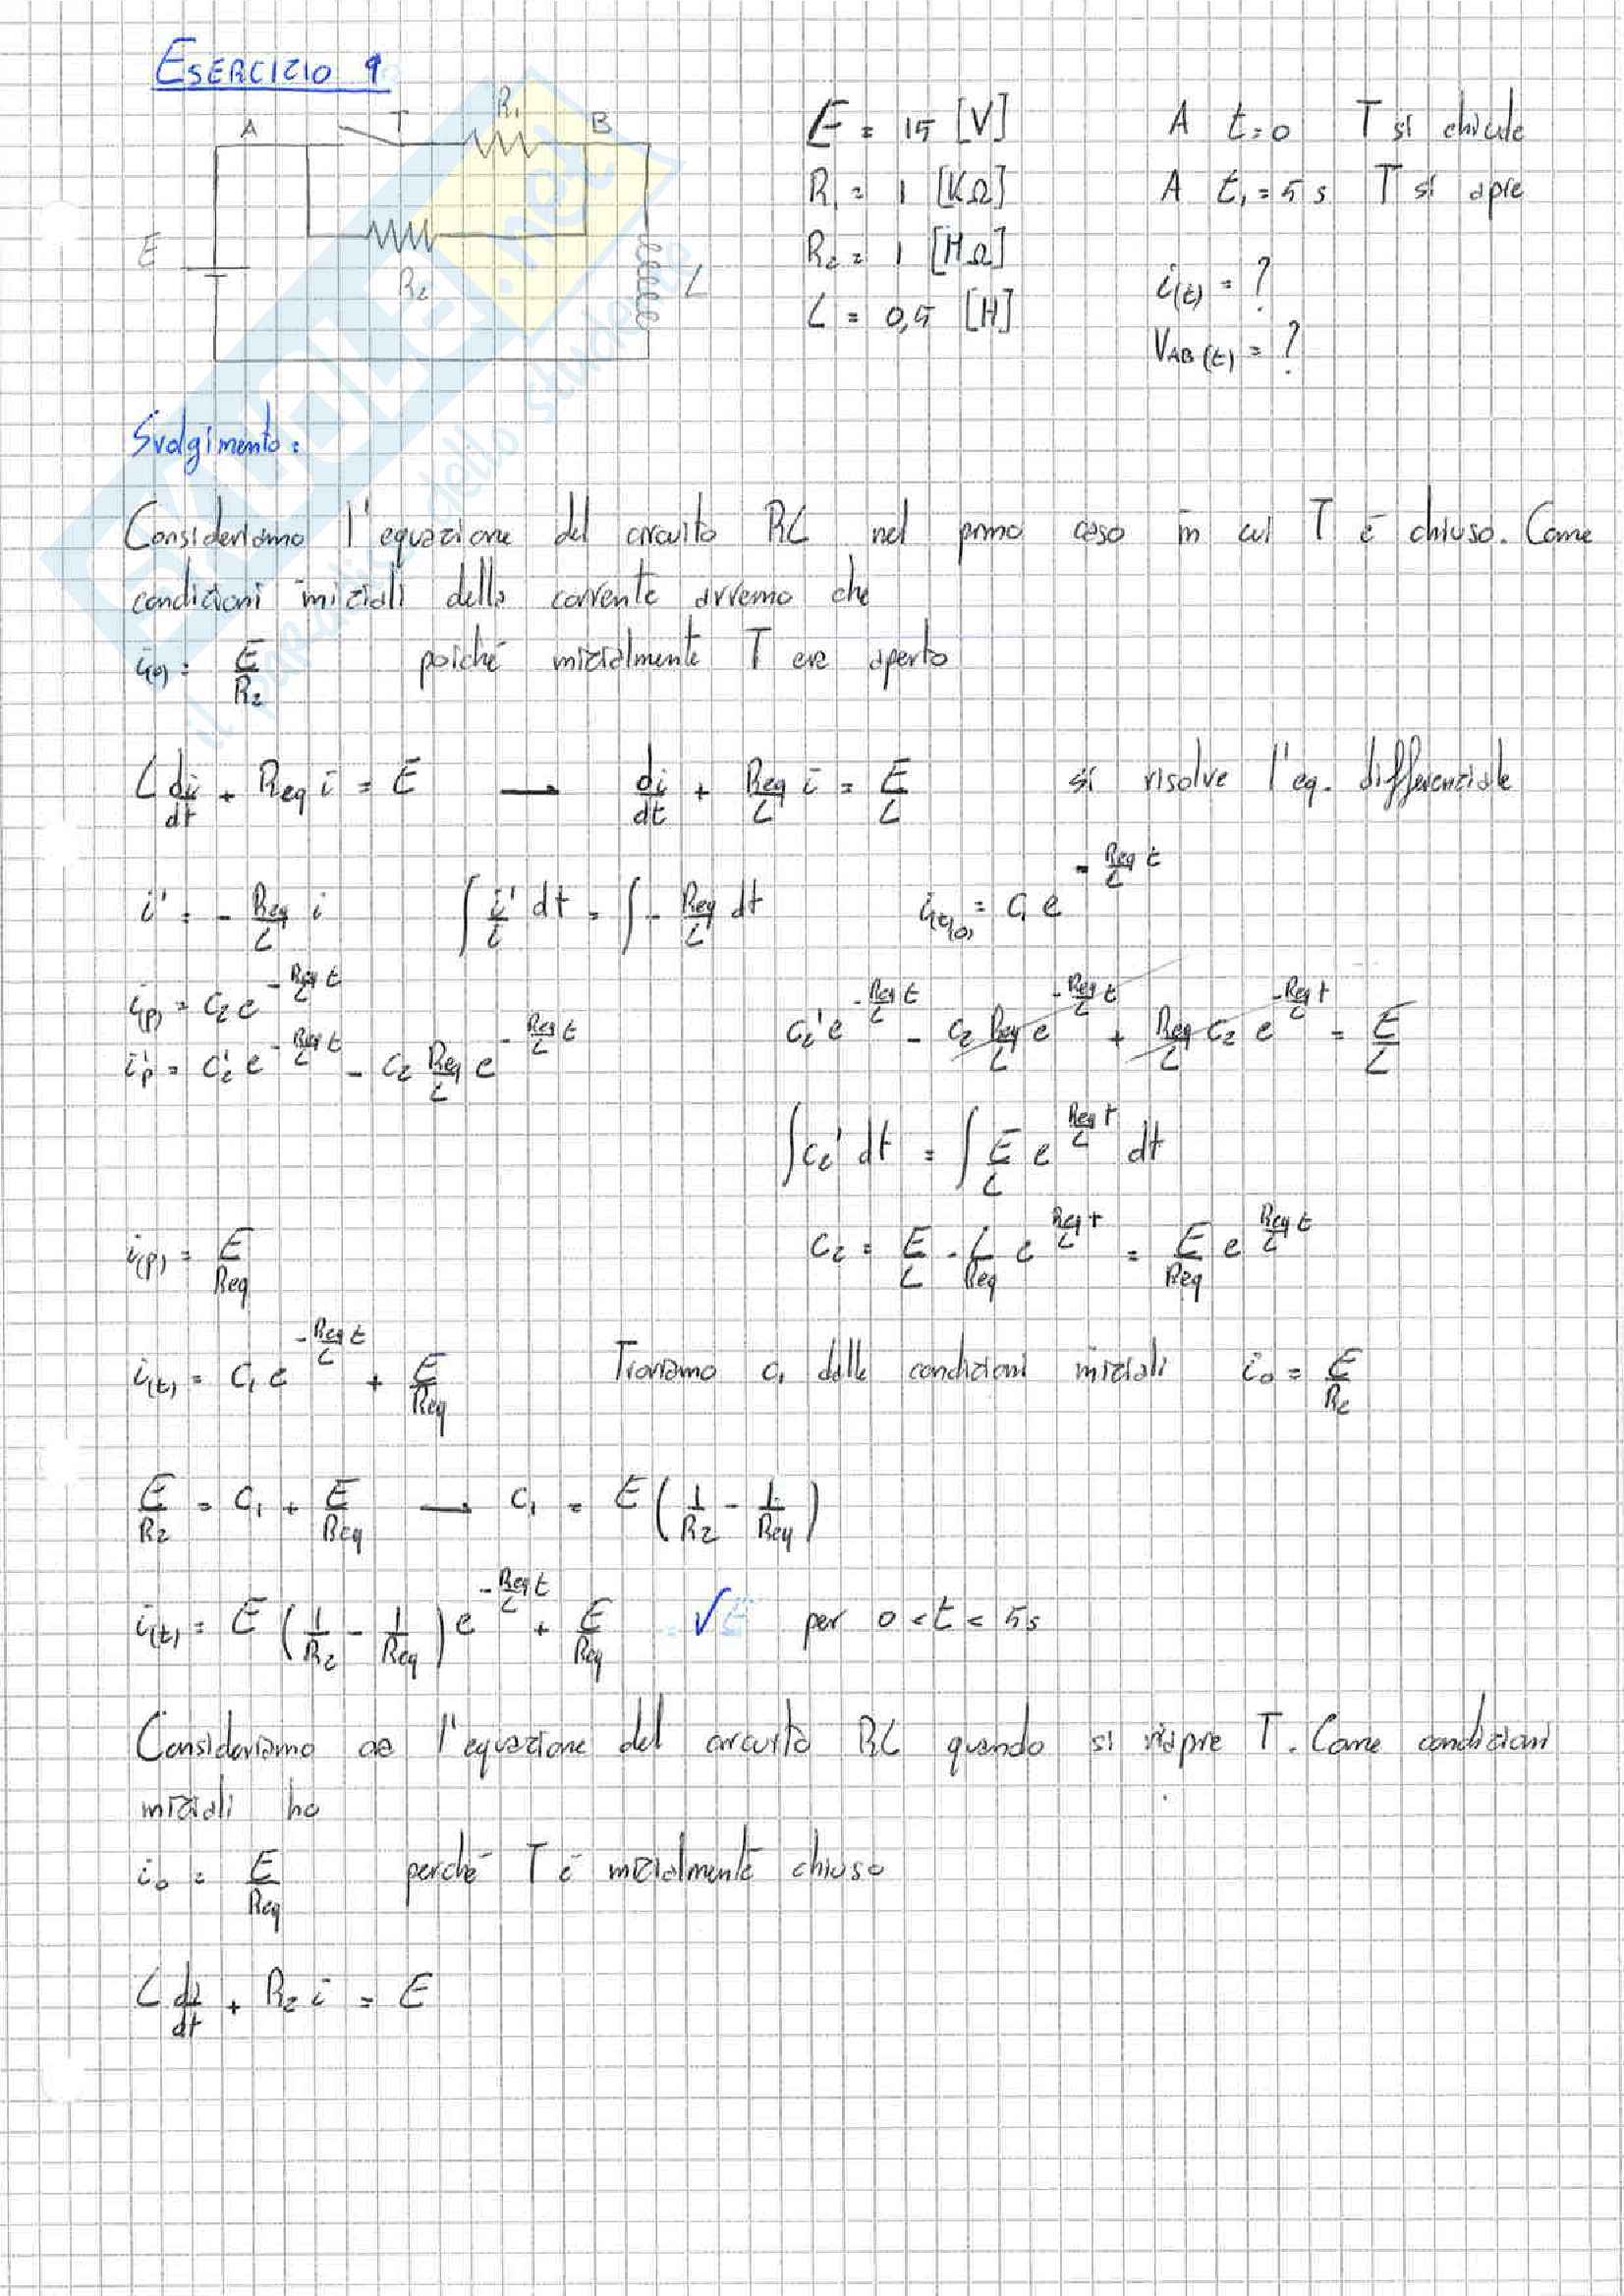 ESERCIZIO 9
A T R₁ B
E R₂ L
E = 15 [V] A t=0 T si chiude
R₁ = 1 [KΩ] A t₁ = 5 s T si apre
R₂ = 1 [MΩ] i(t) = ?
L = 0,5 [H] VAB(t) = ?
Svolgimento:
Consideriamo l'equazione del circuito RL nel primo caso in cui T è chiuso. Come
condizioni iniziali della corrente avremo che
i(0) = E/R₂ poiché inizialmente T era aperto
L di/dt + Req i = E → di/dt + Req/L i = E/L si risolve l'eq. differenziale
i' = - Req/L i ∫ i'/i dt = ∫ - Req/L dt i(t)(0) = c₁ e^(-Req/L t)
i(p) = c₂ e^(-Req/L t)
i'p = c₂' e^(-Req/L t) - c₂ Req/L e^(-Req/L t) c₂' e^(-Req/L t) - c₂ Req/L e^(-Req/L t) + Req/L c₂ e^(-Req/L t) = E/L
∫ c₂' dt = ∫ E/L e^(Req/L t) dt
i(p) = E/Req c₂ = E/L · L/Req e^(Req/L t) = E/Req e^(Req/L t)
i(t) = c₁ e^(-Req/L t) + E/Req Troviamo c₁ dalle condizioni iniziali i₀ = E/R₂
E/R₂ = c₁ + E/Req → c₁ = E (1/R₂ - 1/Req)
i(t) = E (1/R₂ - 1/Req) e^(-Req/L t) + E/Req √ per 0 < t < 5s
Consideriamo l'equazione del circuito RL quando si riapre T. Come condizioni
iniziali ho
i₀ = E/Req perché T è inizialmente chiuso
L di/dt + R₂ i = E
SKUOLA.net
il paradiso dello studente